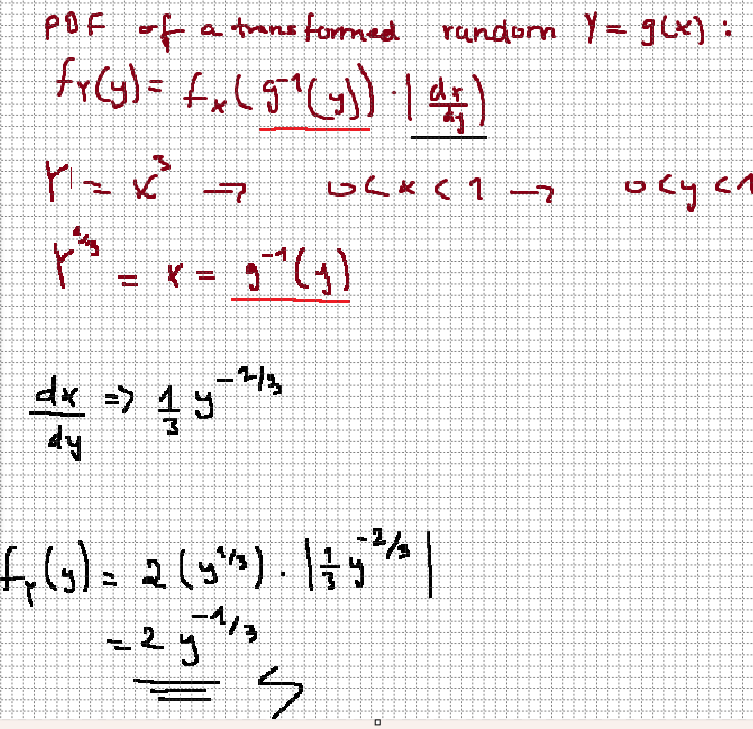 PDF of a transformed random Y = g(x) :
f_Y(y) = f_x(g^-1(y)) · |dx/dy|
Y = x^3 → 0 < x < 1 → 0 < y < 1
Y^1/3 = x = g^-1(y)
dx/dy => 1/3 y^-2/3
f_Y(y) = 2(y^1/3) · |1/3 y^-2/3|
= 2 y^-1/3